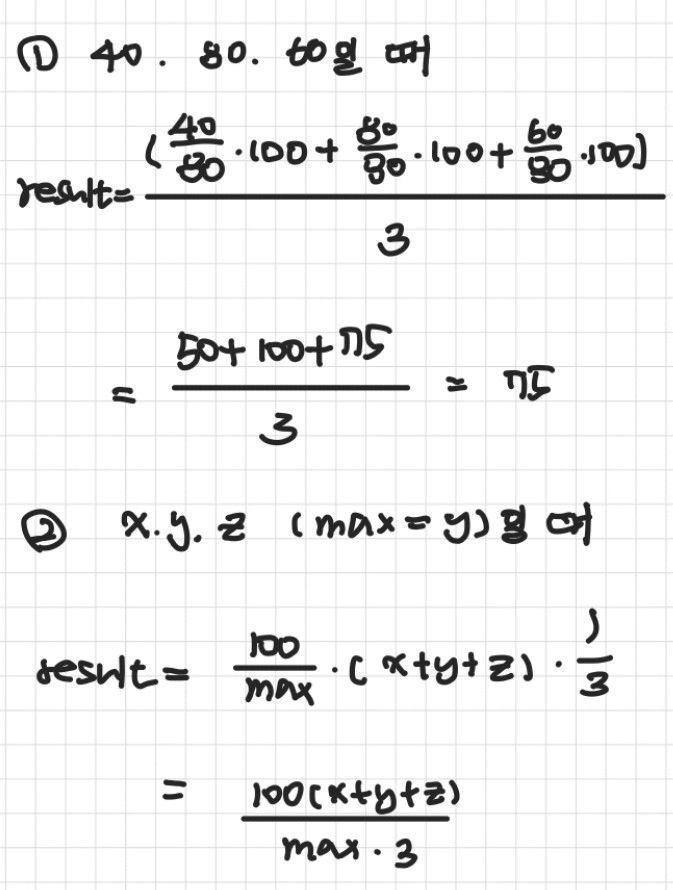 ① 40. 80. 60일 때
result = (40/80 · 100 + 80/80 · 100 + 60/80 · 100) / 3
= 50 + 100 + 75 / 3 = 75
② x. y. z (max = y)일 때
result = 100/max · (x+y+z) · 1/3
= 100(x+y+z) / max · 3